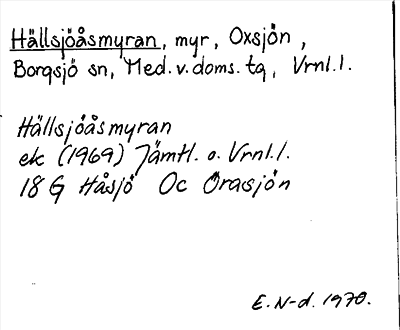 Hällsjöåsmyran, myr, Oxsjön,
Borgsjö sn, Med. v. doms. tg, Vrnl. l.
Hällsjöåsmyran
ek (1969) Jämtl. o. Vrnl. l.
18 G Håsjö Oc Örasjön
E. N-d. 1970.